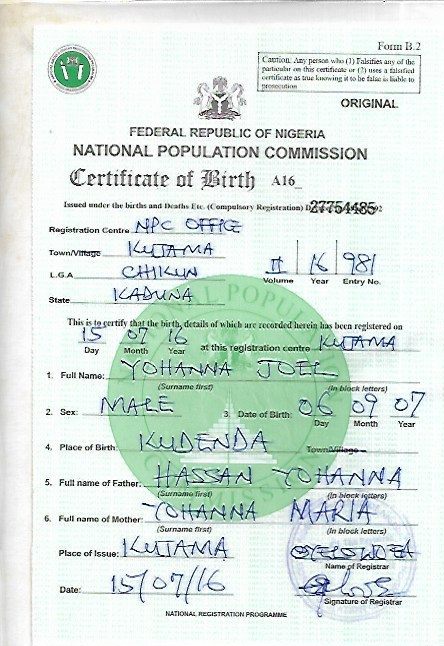 Form B.2
Caution: Any person who (1) Falsifies any of the
particular on this certificate or (2) uses a falsified
certificate as true knowing it to be false is liable to
prosecution
ORIGINAL
FEDERAL REPUBLIC OF NIGERIA
NATIONAL POPULATION COMMISSION
Certificate of Birth A16_
Issued under the births and Deaths Etc. (Compulsory Registration) 27754485
Registration Centre NPC OFFICE
Town/Village KUJAMA
L.G.A CHIKUN II 16 981
Volume Year Entry No.
State KADUNA
This is to certify that the birth, details of which are recorded herein has been registered on
15 07 16 at this registration centre KUJAMA
Day Month Year
1. Full Name: YOHANNA JOEL
(Surname first) (In block letters)
2. Sex: MALE 3. Date of Birth: 06 09 07
Day Month Year
4. Place of Birth: KUDENDA Town/Village
5. Full name of Father: HASSAN YOHANNA
(Surname first) (In block letters)
6. Full name of Mother: YOHANNA MARIA
(Surname first) (In block letters)
Place of Issue: KUJAMA
Name of Registrar
Date: 15/07/16
Signature of Registrar
NATIONAL REGISTRATION PROGRAMME